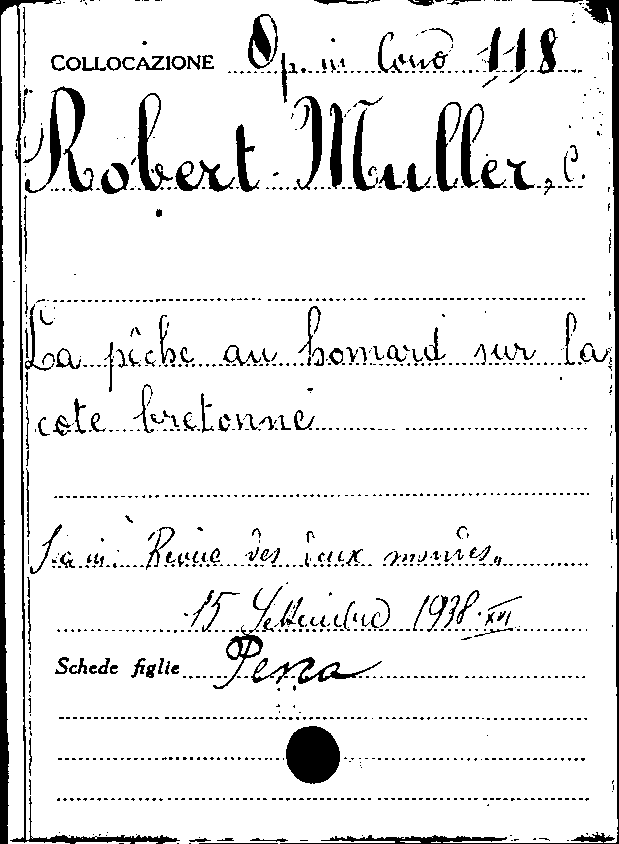 COLLOCAZIONE Op. in Cons 118
Robert-Muller, C.
La pêche au homard sur la
cote bretonne
S.a in: Revue des deux mondes„
15 Settembre 1938-XVI
Schede figlie Pesca